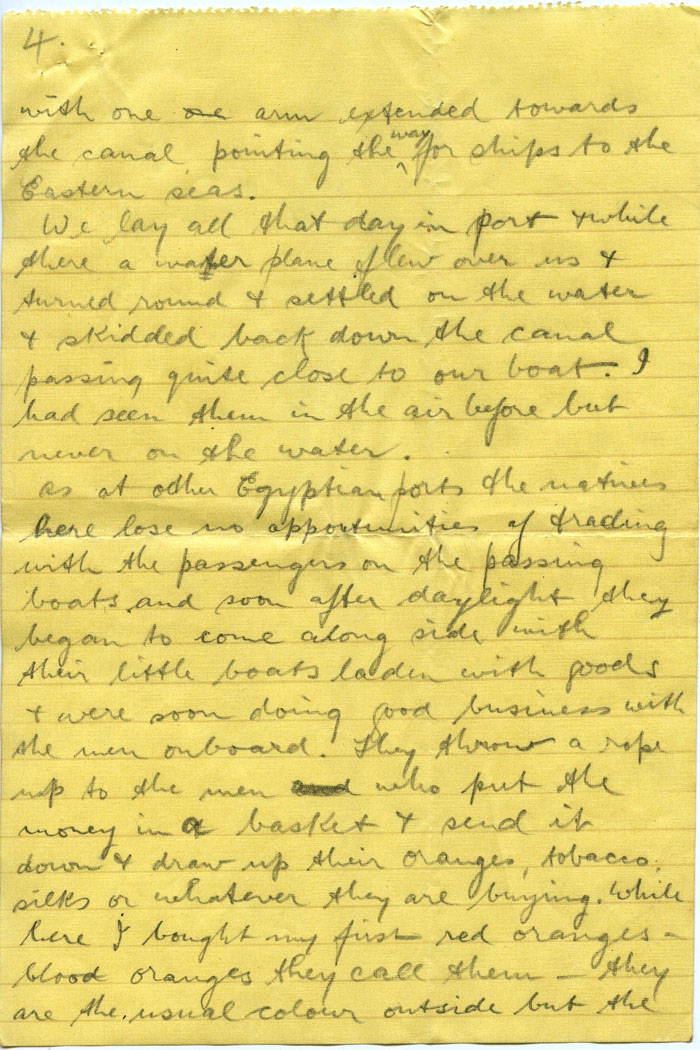 4.
with one one arm extended towards
the canal pointing the way for ships to the
Eastern seas.
We lay all that day in port & while
there a water plane flew over us &
turned round & settled on the water
& skidded back down the canal
passing quite close to our boat. I
had seen them in the air before but
never on the water.
as at other Egyptian ports the natives
here lose no opportunities of trading
with the passengers on the passing
boats and soon after daylight they
began to come along side with
their little boats laden with goods
& were soon doing good business with
the men onboard. They throw a rope
up to the men who put the
money in a basket & send it
down & draw up their oranges, tobacco,
silks or whatever they are buying. While
here I bought my first red oranges –
blood oranges they call them – they
are the usual colour outside but the